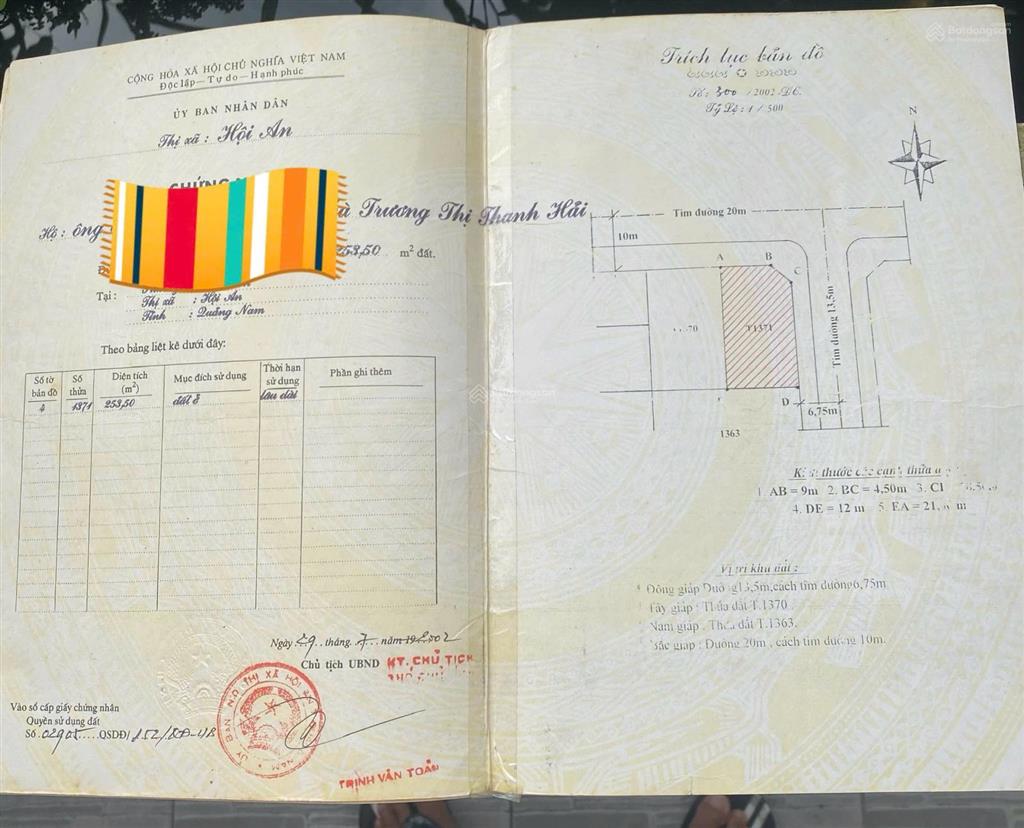 CỘNG HÒA XÃ HỘI CHỦ NGHĨA VIỆT NAM
Độc lập – Tự do – Hạnh phúc
ỦY BAN NHÂN DÂN
Thị xã : Hội An
CHỨNG
Hộ: ông
Trương Thị Thanh Hải
253,50 m² đất.
Tại :
Thị xã : Hội An
Tỉnh : Quảng Nam
Theo bảng liệt kê dưới đây:
Số tờ bản đồ
Số thửa
Diện tích (m²)
Mục đích sử dụng
Thời hạn sử dụng
Phần ghi thêm
4 1371 253,50 đất ở lâu dài
Ngày 29 tháng 7 năm 2002
Chủ tịch UBND KT. CHỦ TỊCH
Vào sổ cấp giấy chứng nhân
Quyền sử dụng đất
Số 02905 QSDĐ/
TRỊNH VĂN TOẢN
Trích lục bản đồ
Số: 300 /2002 ĐC.
Tỷ Lệ : 1 / 500
N
Tim đường 20m
10m
A
B
C
T1371
70
Tim đường 13,5m
D
6,75m
1363
thước các cạnh thửa
1. AB = 9m 2. BC = 4,50m 3.
4. DE = 12 m 5. EA = 21, m
Vị trí khu đất :
Đông giáp 13,5m,cách tim đường6,75m
Tây giáp : Thửa đất T.1370
Nam giáp : Thửa đất T.1363.
Bắc giáp : Đường 20m , cách tim đường 10m.
Batdongsan